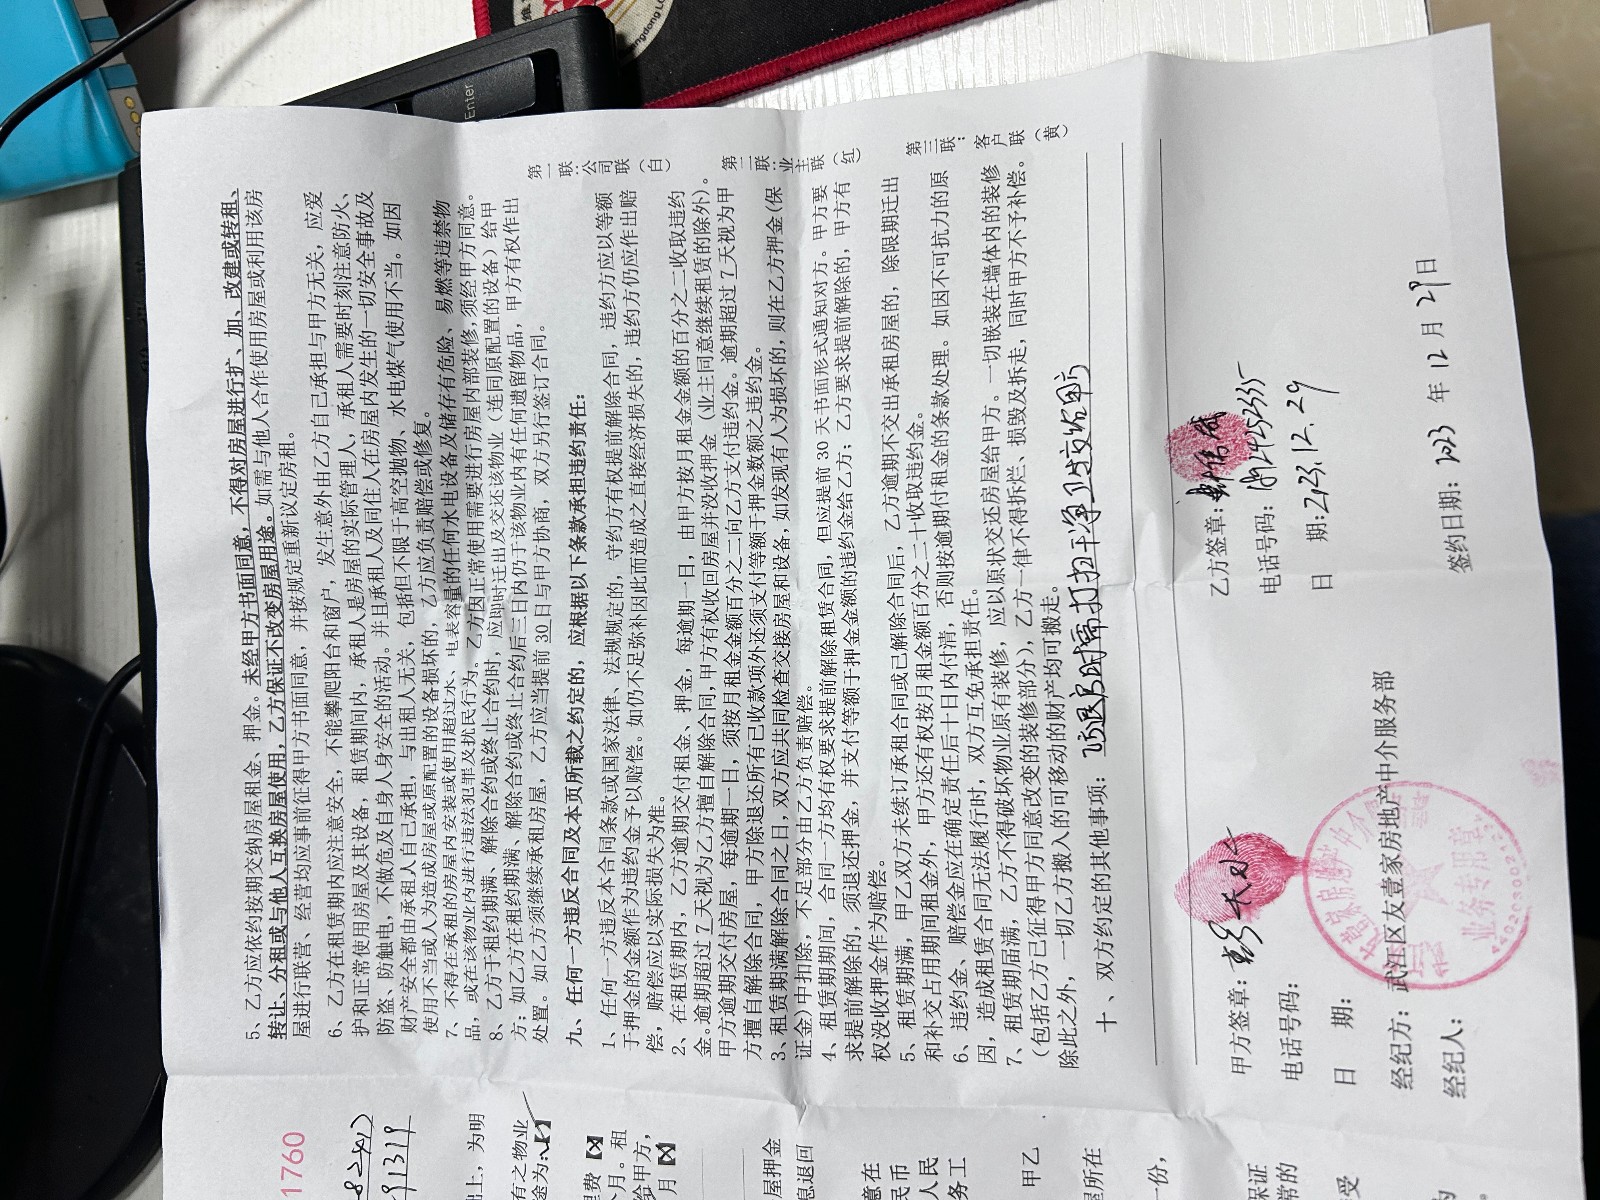 5、乙方应依约按期交纳房屋租金、押金。未经甲方书面同意，不得对房屋进行扩、加、改建或转租、
转让、分租或与他人互换房屋使用，乙方保证不改变房屋用途。如需与他人合作使用房屋或利用该房
屋进行联营、经营均应事前征得甲方书面同意，并按规定重新议定房租。
6、乙方在租赁期内应注意安全，不能攀爬阳台和窗户，发生意外由乙方自己承担与甲方无关，应爱
护和正常使用房屋及其设备，租赁期间内，承租人是房屋的实际管理人，承租人需要时刻注意防火、
防盗、防触电，不做危及自身人身安全的活动。并且承租人及同住人在房屋内发生的一切安全事故及
财产安全都由承租人自己承担，与出租人无关，包括但不限于高空抛物、水电煤气使用不当。如因
使用不当或人为造成房屋或原配置的设备损坏的，乙方应负责赔偿或修复。
7、不得在承租的房屋内安装或使用超过水、电表容量的任何水电设备及储存有危险、易燃等违禁物
品，或在该物业内进行违法犯罪及扰民行为。乙方因正常使用需要进行房屋内部装修，须经甲方同意。
8、乙方于租约期满、解除合约或终止合约时，应即时迁出及交还该物业（连同原配置的设备）给甲
方：如乙方在租约期满、解除合约或终止合约后三日内仍于该物业内有任何遗留物品，甲方有权作出
处置。如乙方须继续承租房屋，乙方应当提前 30 日与甲方协商，双方另行签订合同。
九、任何一方违反合同及本页所载之约定的，应根据以下条款承担违约责任：
1、任何一方违反本合同条款或国家法律、法规规定的，守约方有权提前解除合同，违约方应以等额
于押金的金额作为违约金予以赔偿。如仍不足弥补因此而造成之直接经济损失的，违约方仍应作出赔
偿，赔偿应以实际损失为准。
2、在租赁期内，乙方逾期交付租金、押金，每逾期一日，由甲方按月租金金额的百分之二收取违约
金。逾期超过 7 天视为乙方擅自解除合同，甲方有权收回房屋并没收押金（业主同意继续租赁的除外）。
甲方逾期交付房屋，每逾期一日，须按月租金金额百分之二向乙方支付违约金。逾期超过 7 天视为甲
方擅自解除合同，甲方除退还所有已收款项外还须支付等额于押金数额之违约金。
3、租赁期满解除合同之日，双方应共同检查交接房屋和设备，如发现有人为损坏的，则在乙方押金(保
证金)中扣除，不足部分由乙方负责赔偿。
4、租赁期期间，合同一方均有权要求提前解除租赁合同，但应提前 30 天书面形式通知对方。甲方要
求提前解除的，须退还押金，并支付等额于押金金额的违约金给乙方；乙方要求提前解除的，甲方有
权没收押金作为赔偿。
5、租赁期满，甲乙双方未续订承租合同或已解除合同后，乙方逾期不交出承租房屋的，除限期迁出
和补交占用期间租金外，甲方还有权按月租金额百分之二十收取违约金。
6、违约金、赔偿金应在确定责任后十日内付清，否则按逾期付租金的条款处理。如因不可抗力的原
因，造成租赁合同无法履行时，双方互免承担责任。
7、租赁期届满，乙方不得破坏物业原有装修，应以原状交还房屋给甲方。一切嵌装在墙体内的装修
（包括乙方已征得甲方同意改变的装修部分），乙方一律不得拆烂、损毁及拆走，同时甲方不予补偿。
除此之外，一切乙方搬入的可移动的财产均可搬走。
十、双方约定的其他事项：乙方退房时需打扫干净卫生交给甲方
第一联：公司联（白）
第二联：业主联（红）
第三联：客户联（黄）
甲方签章：
电话号码：
日 期：
经纪方：武江区友壹家房地产中介服务部
经纪人：
乙方签章：
电话号码：
日 期：2023.12.29
签约日期：2023 年 12 月 29 日
业务专用章
1760
Enter